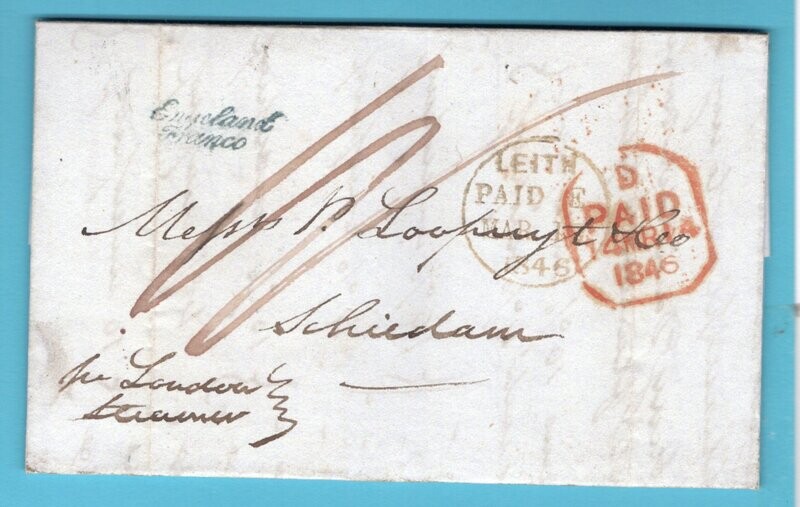 Engeland
Franco
LEITH
PAID E
MAR
1846
D
PAID
14MR14
1846
Messrs P. Loopuyt & Co
Schiedam
per London
Steamer